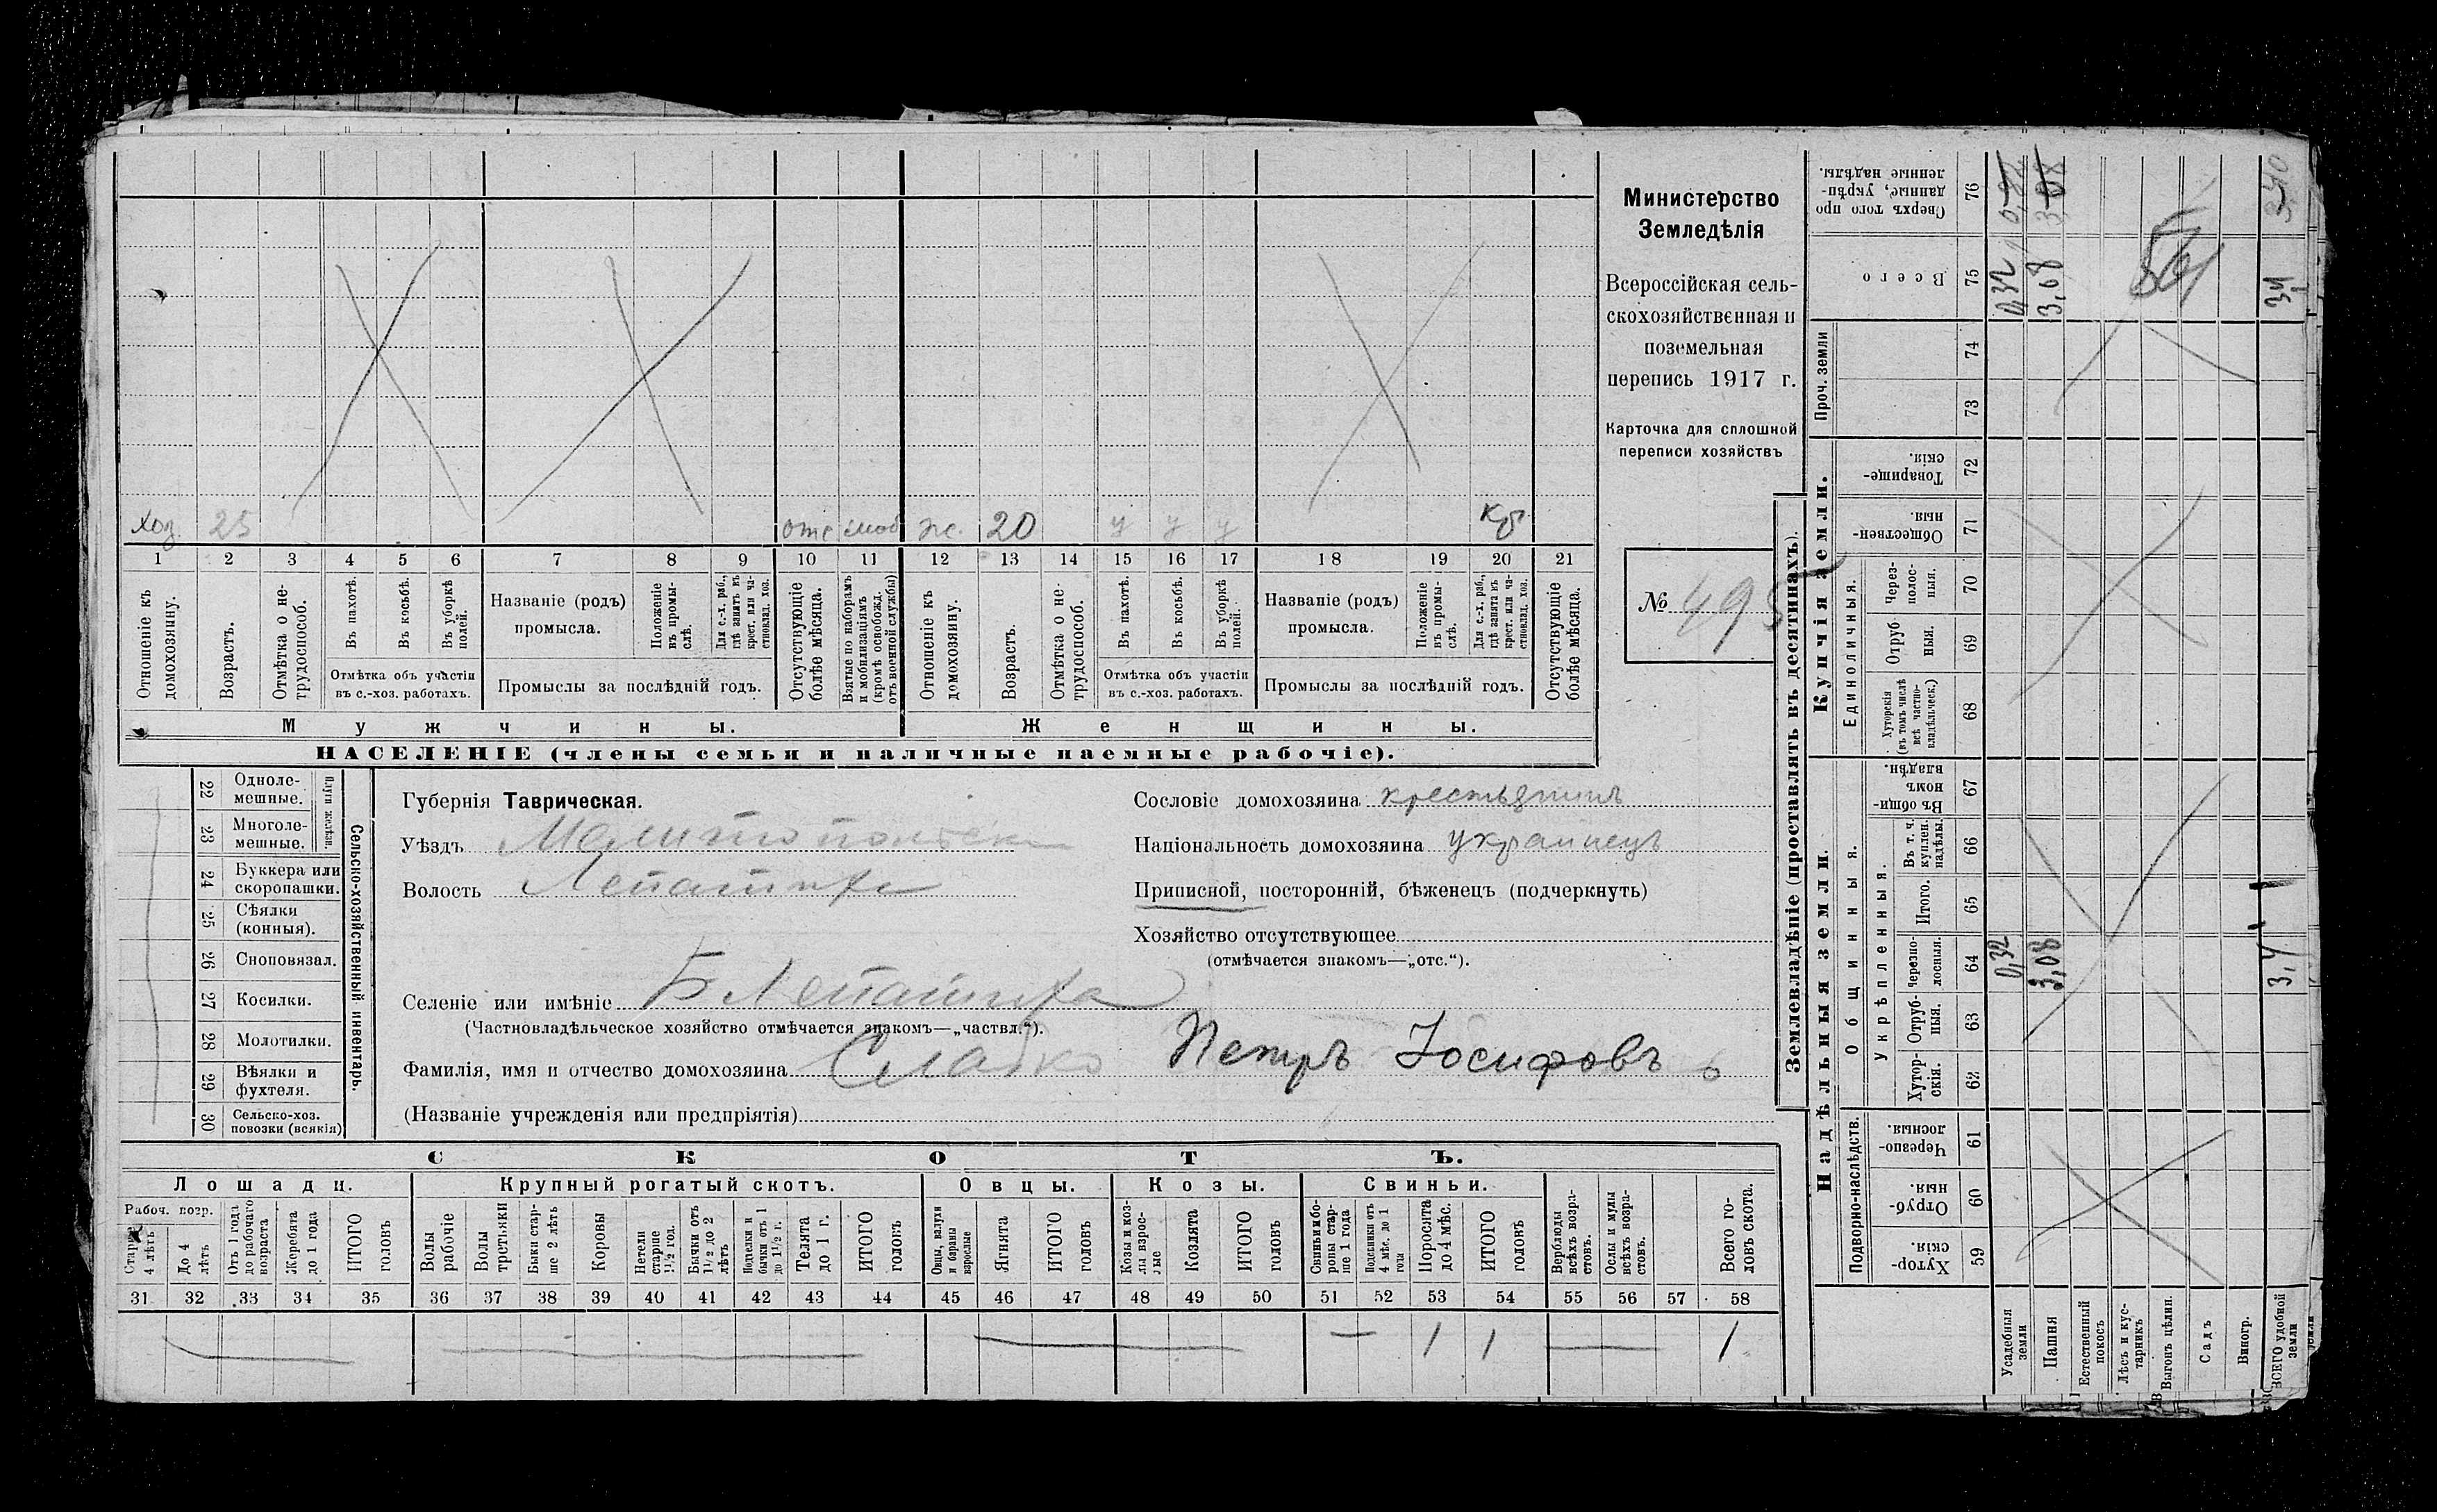 Министерство
Земледѣлія
Всероссійская сель-
скохозяйственная и
поземельная
перепись 1917 г.
Карточка для сплошной
переписи хозяйствъ
№ 495
Хоз. 25 отс моб ж. 20 у у у
1 2 3 4 5 6 7 8 9 10 11 12 13 14 15 16 17 18 19 20 21
Отношеніе къ домохозяину.
Возрастъ.
Отмѣтка о не-трудоспособ.
Въ пахотѣ.
Въ косьбѣ.
Въ уборкѣ полей.
Отмѣтка объ участіи
въ с.-хоз. работахъ.
Названіе (родъ)
промысла.
Положеніе въ промы-слѣ.
Для с.-х. раб., гдѣ занятъ въ крест. или ча-стновлад. хоз.
Промыслы за послѣдній годъ.
Отсутствующіе болѣе мѣсяца.
Взятые по наборамъ и мобилизаціямъ (кромѣ освобожд. отъ военной службы)
Отношеніе къ домохозяину.
Возрастъ.
Отмѣтка о не-трудоспособ.
Въ пахотѣ.
Въ косьбѣ.
Въ уборкѣ полей.
Отмѣтка объ участіи
въ с.-хоз. работахъ.
Названіе (родъ)
промысла.
Положеніе въ промы-слѣ.
Для с.-х. раб., гдѣ занята въ крест. или ча-стновлад. хоз.
Промыслы за послѣдній годъ.
Отсутствующіе болѣе мѣсяца.
Мужчины.
Женщины.
НАСЕЛЕНІЕ (члены семьи и наличные наемные рабочіе).
22 Одноле-мешные.
23 Многоле-мешные.
Плуги желѣзн.
24 Буккера или скоропашки.
25 Сѣялки (конныя).
26 Сноповязал.
27 Косилки.
28 Молотилки.
29 Вѣялки и фухтеля.
30 Сельско-хоз. повозки (всякія)
Сельско-хозяйственный инвентарь.
Губернія Таврическая.
Уѣздъ Мелитопольск
Волость Лепатиха
Селеніе или имѣніе Б Лепатиха
(Частновладѣльческое хозяйство отмѣчается знакомъ—„частвл.“).
Фамилія, имя и отчество домохозяина Слабко Петръ Іосифовъ
(Названіе учрежденія или предпріятія)
Сословіе домохозяина крестьянинъ
Національность домохозяина украинецъ
Приписной, посторонній, бѣженецъ (подчеркнуть)
Хозяйство отсутствующее
(отмѣчается знакомъ—„отс.“).
СКОТЪ.
Лошади.
Крупный рогатый скотъ.
Овцы.
Козы.
Свиньи.
Рабоч. возр.
Старше 4 лѣтъ
До 4 лѣтъ
Отъ 1 года до рабочаго возраста
Жеребята до 1 года
ИТОГО головъ
Волы рабочіе
Волы третьяки
Быки стар-ше 2 лѣтъ
Коровы
Нетели старше 1½ год.
Бычки отъ 1½ до 2 лѣтъ
Подтелки и бычки отъ 1 до 1½ г.
Телята до 1 г.
ИТОГО головъ
Овцы, валухи и бараны взрослые
Ягнята
ИТОГО головъ
Козы и коз-лы взрос-лые
Козлята
ИТОГО головъ
Свиньи и бо-ровы стар-ше 1 года
Подсвинки отъ 4 мѣс. до 1 года
Поросята до 4 мѣс.
ИТОГО головъ
Верблюды всѣхъ возра-стовъ.
Ослы и мулы всѣхъ возра-стовъ.
Всего го-ловъ скота.
31 32 33 34 35 36 37 38 39 40 41 42 43 44 45 46 47 48 49 50 51 52 53 54 55 56 57 58
1 1 1
Землевладѣніе (проставлять въ десятинахъ).
Надѣльныя земли.
Купчія земли.
Проч. земли
Подворно-наслѣдств.
Общинныя.
Укрѣпленныя.
Единоличныя.
Хутор-скія. 59
Отруб-ныя. 60
Черезпо-лосныя. 61
Хутор-скія. 62
Отруб-ныя. 63
Черезпо-лосныя. 64
Итого. 65
Въ т. ч. куплен. надѣлы. 66
Въ общи-номъ владѣн. 67
Хуторскія (въ томъ числѣ всѣ частно-владѣльческ.) 68
Отруб-ныя. 69
Через-полос-ныя. 70
Обществен-ныя. 71
Товарище-скія. 72
73
74
Всего 75
Сверхъ того про данные, укрѣп-ленные надѣлы. 76
Усадебныя земли 0,32 0,32
Пашня 3,08 3,08 3,08
Естественный покосъ
Лѣсъ и кус-тарникъ
Выгонъ цѣлин.
Садъ
Виногр.
ВСЕГО удобной земли 3,4 3,4